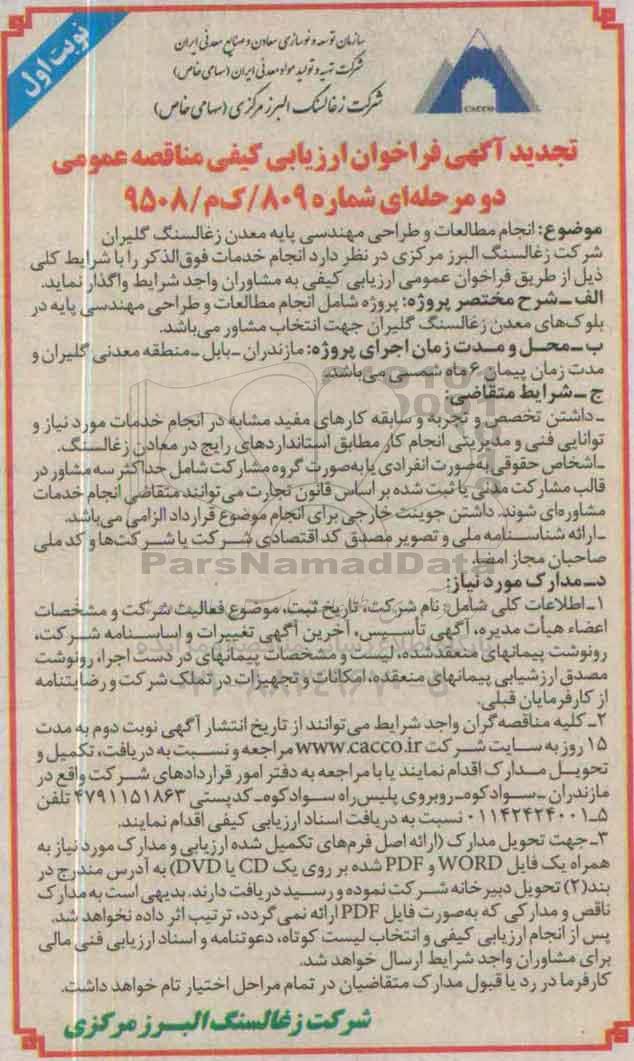 نوبت اول
سازمان توسعه و نوسازی معادن و صنایع معدنی ایران
شرکت تهیه و تولید مواد معدنی ایران (سهامی خاص)
شرکت زغالسنگ البرز مرکزی (سهامی خاص)
CACCO
تجدید آگهی فراخوان ارزیابی کیفی مناقصه عمومی
دو مرحله‌ای شماره ۸۰۹/ک‌م/۹۵۰۸
موضوع: انجام مطالعات و طراحی مهندسی پایه معدن زغالسنگ گلیران
شرکت زغالسنگ البرز مرکزی در نظر دارد انجام خدمات فوق‌الذکر را با شرایط کلی
ذیل از طریق فراخوان عمومی ارزیابی کیفی به مشاوران واجد شرایط واگذار نماید.
الف ـ شرح مختصر پروژه: پروژه شامل انجام مطالعات و طراحی مهندسی پایه در
بلوک‌های معدن زغالسنگ گلیران جهت انتخاب مشاور می‌باشد.
ب ـ محل و مدت زمان اجرای پروژه: مازندران ـ بابل ـ منطقه معدنی گلیران و
مدت زمان پیمان ۶ ماه شمسی می‌باشد.
ج ـ شرایط متقاضی:
ـ داشتن تخصص و تجربه و سابقه کارهای مفید مشابه در انجام خدمات مورد نیاز و
توانایی فنی و مدیریتی انجام کار مطابق استانداردهای رایج در معادن زغالسنگ.
ـ اشخاص حقوقی به‌صورت انفرادی یا به‌صورت گروه مشارکت شامل حداکثر سه مشاور در
قالب مشارکت مدنی یا ثبت شده بر اساس قانون تجارت می‌توانند متقاضی انجام خدمات
مشاوره‌ای شوند. داشتن جوینت خارجی برای انجام موضوع قرارداد الزامی می‌باشد.
ـ ارائه شناسنامه ملی و تصویر مصدق کد اقتصادی شرکت یا شرکت‌ها و کد ملی
صاحبان مجاز امضا.
ParsNamadData
د ـ مدارک مورد نیاز:
۱ـ اطلاعات کلی شامل: نام شرکت، تاریخ ثبت، موضوع فعالیت شرکت و مشخصات
اعضاء هیأت مدیره، آگهی تأسیس، آخرین آگهی تغییرات و اساسنامه شرکت،
رونوشت پیمانهای منعقدشده، لیست و مشخصات پیمانهای در دست اجرا، رونوشت
مصدق ارزشیابی پیمانهای منعقده، امکانات و تجهیزات در تملک شرکت و رضایتنامه
از کارفرمایان قبلی.
۲ـ کلیه مناقصه‌گران واجد شرایط می‌توانند از تاریخ انتشار آگهی نوبت دوم به مدت
۱۵ روز به سایت شرکت www.cacco.ir مراجعه و نسبت به دریافت، تکمیل و
تحویل مدارک اقدام نمایند یا با مراجعه به دفتر امور قراردادهای شرکت واقع در
مازندران ـ سوادکوه ـ روبروی پلیس‌راه سوادکوه ـ کدپستی ۴۷۹۱۱۵۱۸۶۳ تلفن
۵ـ۰۱۱۴۲۴۲۴۰۰۱ نسبت به دریافت اسناد ارزیابی کیفی اقدام نمایند.
۳ـ جهت تحویل مدارک (ارائه اصل فرم‌های تکمیل شده ارزیابی و مدارک مورد نیاز به
همراه یک فایل WORD و PDF شده بر روی یک CD یا DVD) به آدرس مندرج در
بند (۲) تحویل دبیرخانه شرکت نموده و رسید دریافت دارند. بدیهی است به مدارک
ناقص و مدارکی که به‌صورت فایل PDF ارائه نمی‌گردد، ترتیب اثر داده نخواهد شد.
پس از انجام ارزیابی کیفی و انتخاب لیست کوتاه، دعوتنامه و اسناد ارزیابی فنی مالی
برای مشاوران واجد شرایط ارسال خواهد شد.
کارفرما در رد یا قبول مدارک متقاضیان در تمام مراحل اختیار تام خواهد داشت.
شرکت زغالسنگ البرز مرکزی